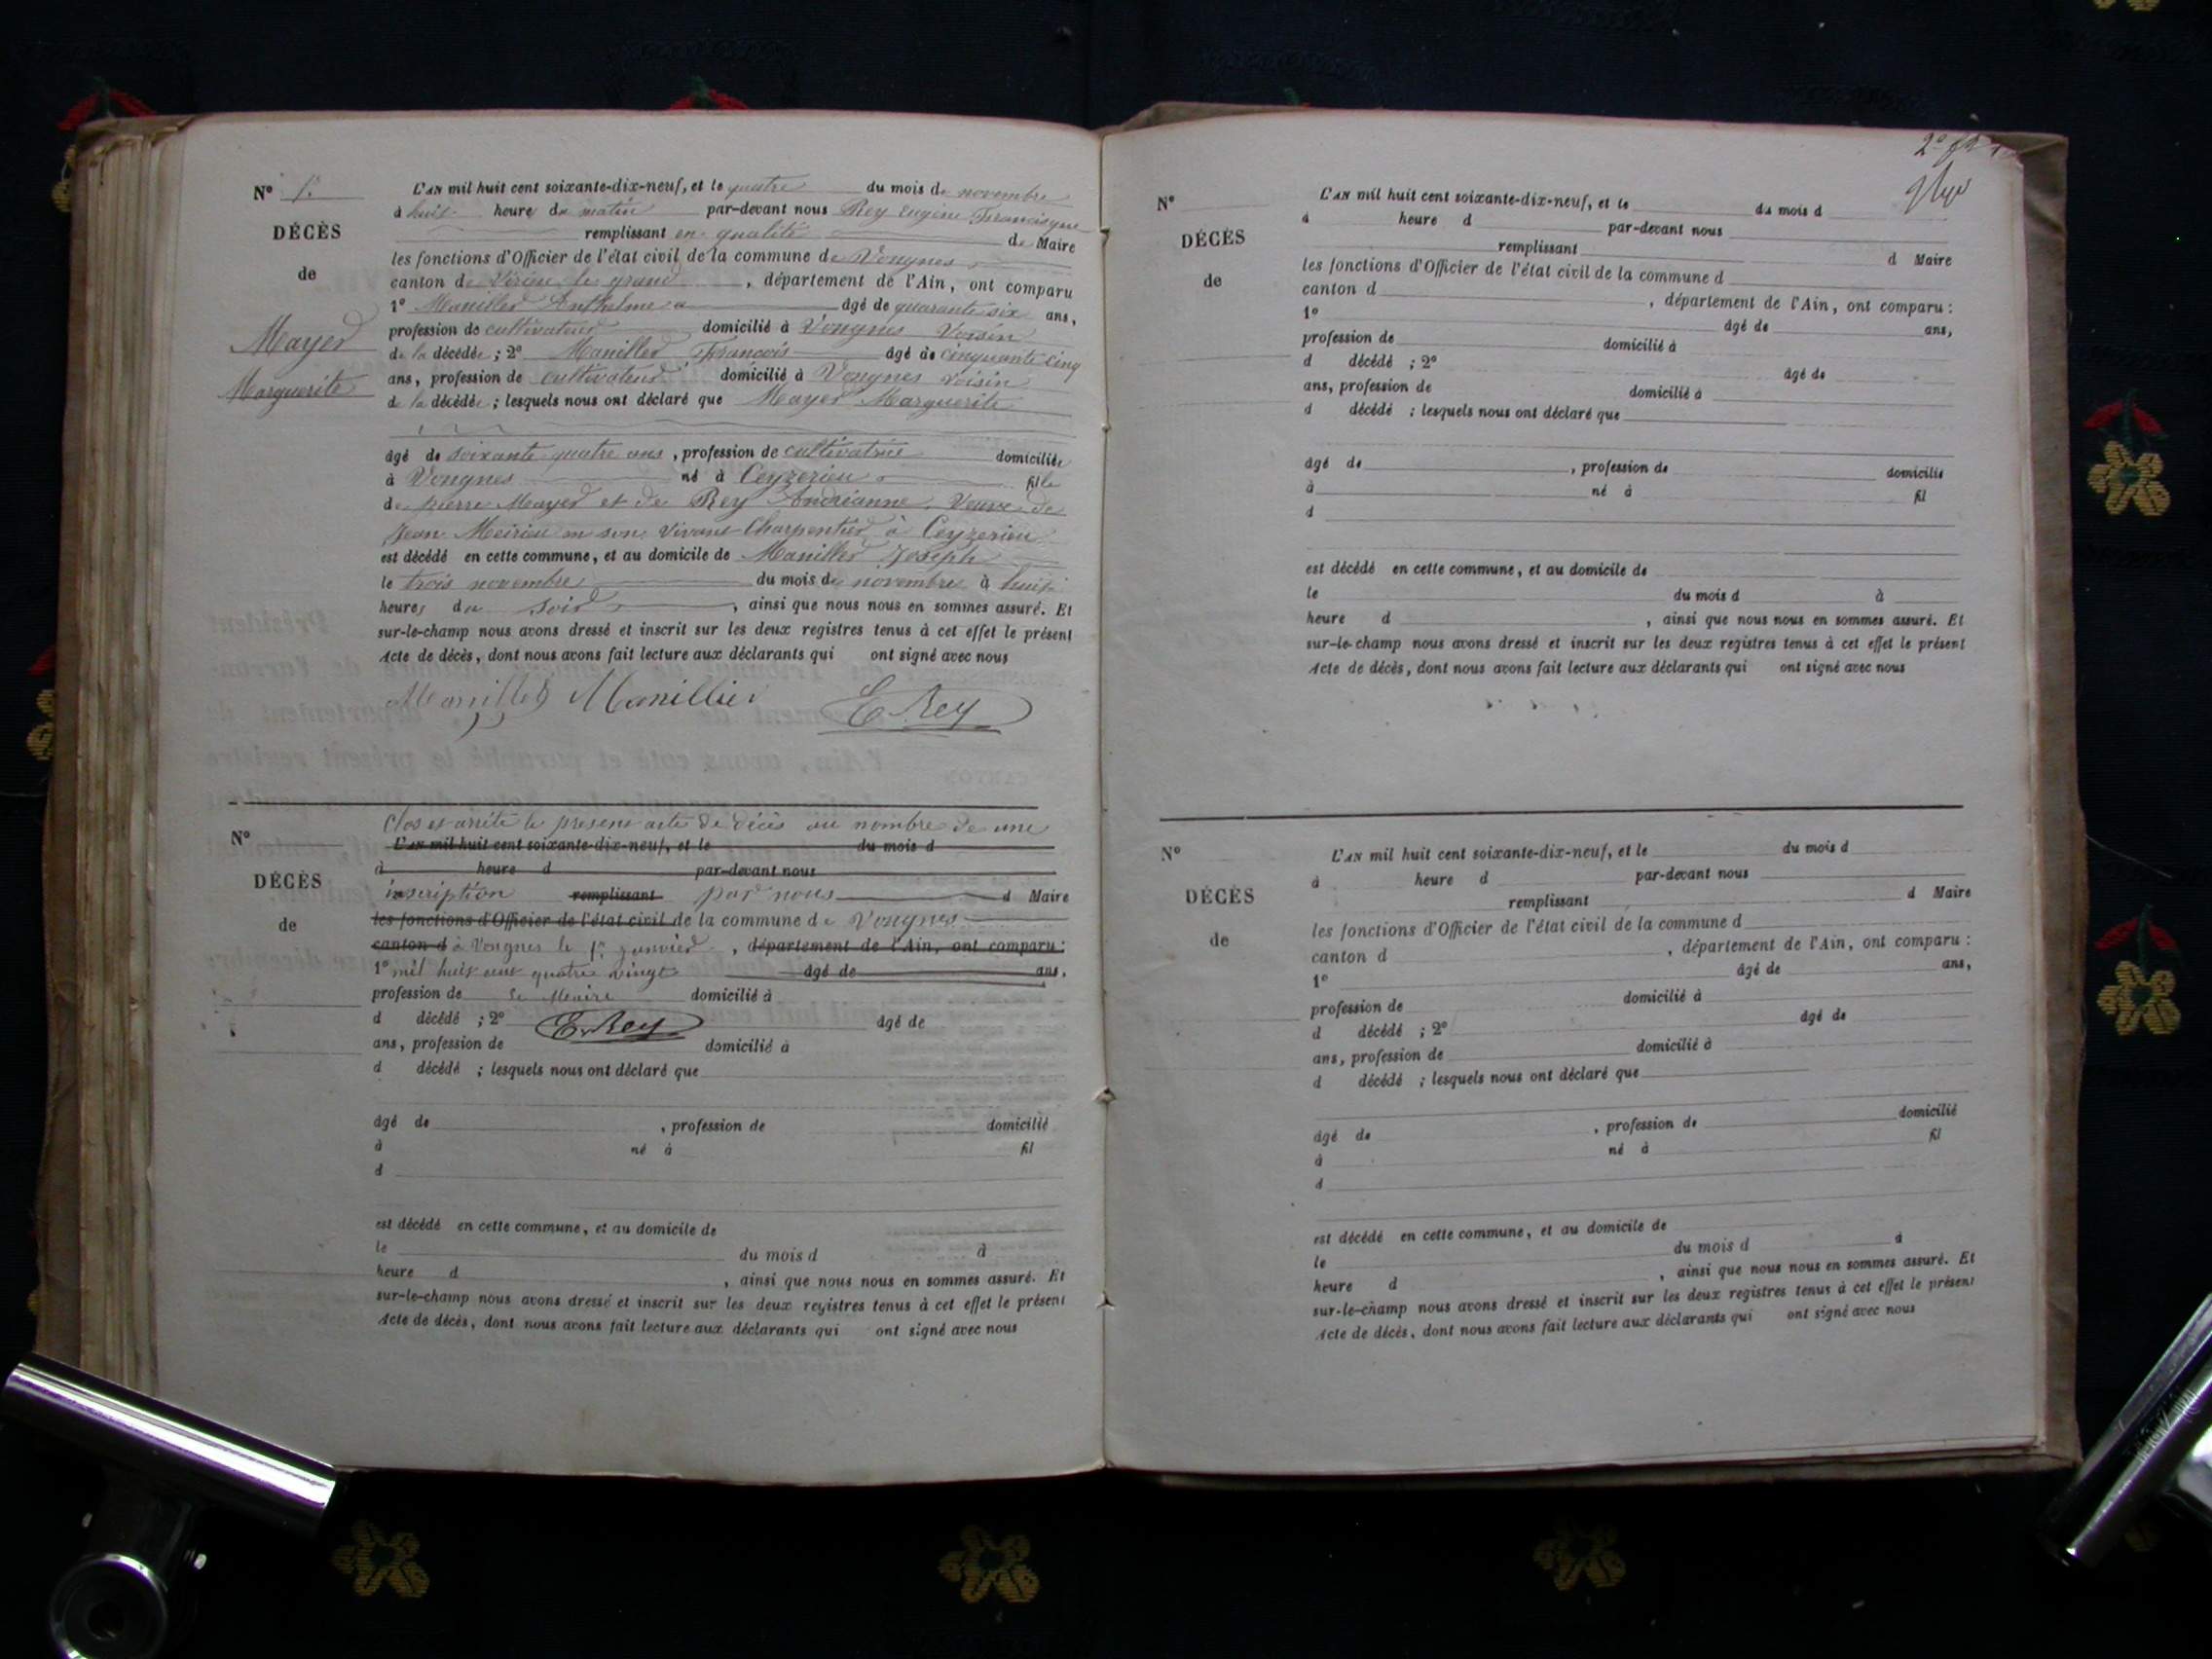 N° 1.
DÉCÈS
de
Mayer
Marguerite
L'AN mil huit cent soixante-dix-neuf, et le quatre du mois de novembre
à huit heure du matin par-devant nous Rey Eugène Francisque
remplissant en qualité de Maire
les fonctions d'Officier de l'état civil de la commune de Vongnes
canton de Virieu le grand, département de l'Ain, ont comparu
1° Manillier Anthelme âgé de quarante six ans,
profession de cultivateur domicilié à Vongnes Voisin
de la décédée ; 2° Manillier François âgé de cinquante cinq
ans, profession de cultivateur domicilié à Vongnes voisin
de la décédée ; lesquels nous ont déclaré que Mayer Marguerite
âgé de soixante quatre ans, profession de cultivatrice domiciliée
à Vongnes né à Ceyzerieu fille
de pierre Mayer et de Rey Andréanne, Veuve de
Jean Meirieu en son vivant Charpentier à Ceyzerieu
est décédé en cette commune, et au domicile de Manillier Joseph
le trois novembre du mois de novembre à huit
heures du soir, ainsi que nous nous en sommes assuré. Et
sur-le-champ nous avons dressé et inscrit sur les deux registres tenus à cet effet le présent
Acte de décès, dont nous avons fait lecture aux déclarants qui ont signé avec nous
Manillier Manillier E. Rey
N°
DÉCÈS
de
Clos et arrêté le present acte de décès au nombre de une
L'AN mil huit cent soixante-dix-neuf, et le du mois d
à heure d par-devant nous
inscription remplissant par nous d Maire
les fonctions d'Officier de l'état civil de la commune de Vongnes
canton d à Vongnes le 1er janvier, département de l'Ain, ont comparu :
1° mil huit cent quatre vingt âgé de ans,
profession de Le Maire domicilié à
d décédé ; 2° E. Rey âgé de
ans, profession de domicilié à
d décédé ; lesquels nous ont déclaré que
âgé de , profession de domicilié
à né à fil
d
est décédé en cette commune, et au domicile de
le du mois d à
heure d , ainsi que nous nous en sommes assuré. Et
sur-le-champ nous avons dressé et inscrit sur les deux registres tenus à cet effet le présent
Acte de décès, dont nous avons fait lecture aux déclarants qui ont signé avec nous
N°
DÉCÈS
de
L'AN mil huit cent soixante-dix-neuf, et le du mois d
à heure d par-devant nous
remplissant d Maire
les fonctions d'Officier de l'état civil de la commune d
canton d , département de l'Ain, ont comparu :
1° âgé de ans,
profession de domicilié à
d décédé ; 2° âgé de
ans, profession de domicilié à
d décédé ; lesquels nous ont déclaré que
âgé de , profession de domicilié
à né à fil
d
est décédé en cette commune, et au domicile de
le du mois d à
heure d , ainsi que nous nous en sommes assuré. Et
sur-le-champ nous avons dressé et inscrit sur les deux registres tenus à cet effet le présent
Acte de décès, dont nous avons fait lecture aux déclarants qui ont signé avec nous
N°
DÉCÈS
de
L'AN mil huit cent soixante-dix-neuf, et le du mois d
à heure d par-devant nous
remplissant d Maire
les fonctions d'Officier de l'état civil de la commune d
canton d , département de l'Ain, ont comparu :
1° âgé de ans,
profession de domicilié à
d décédé ; 2° âgé de
ans, profession de domicilié à
d décédé ; lesquels nous ont déclaré que
âgé de , profession de domicilié
à né à fil
d
est décédé en cette commune, et au domicile de
le du mois d à
heure d , ainsi que nous nous en sommes assuré. Et
sur-le-champ nous avons dressé et inscrit sur les deux registres tenus à cet effet le présent
Acte de décès, dont nous avons fait lecture aux déclarants qui ont signé avec nous